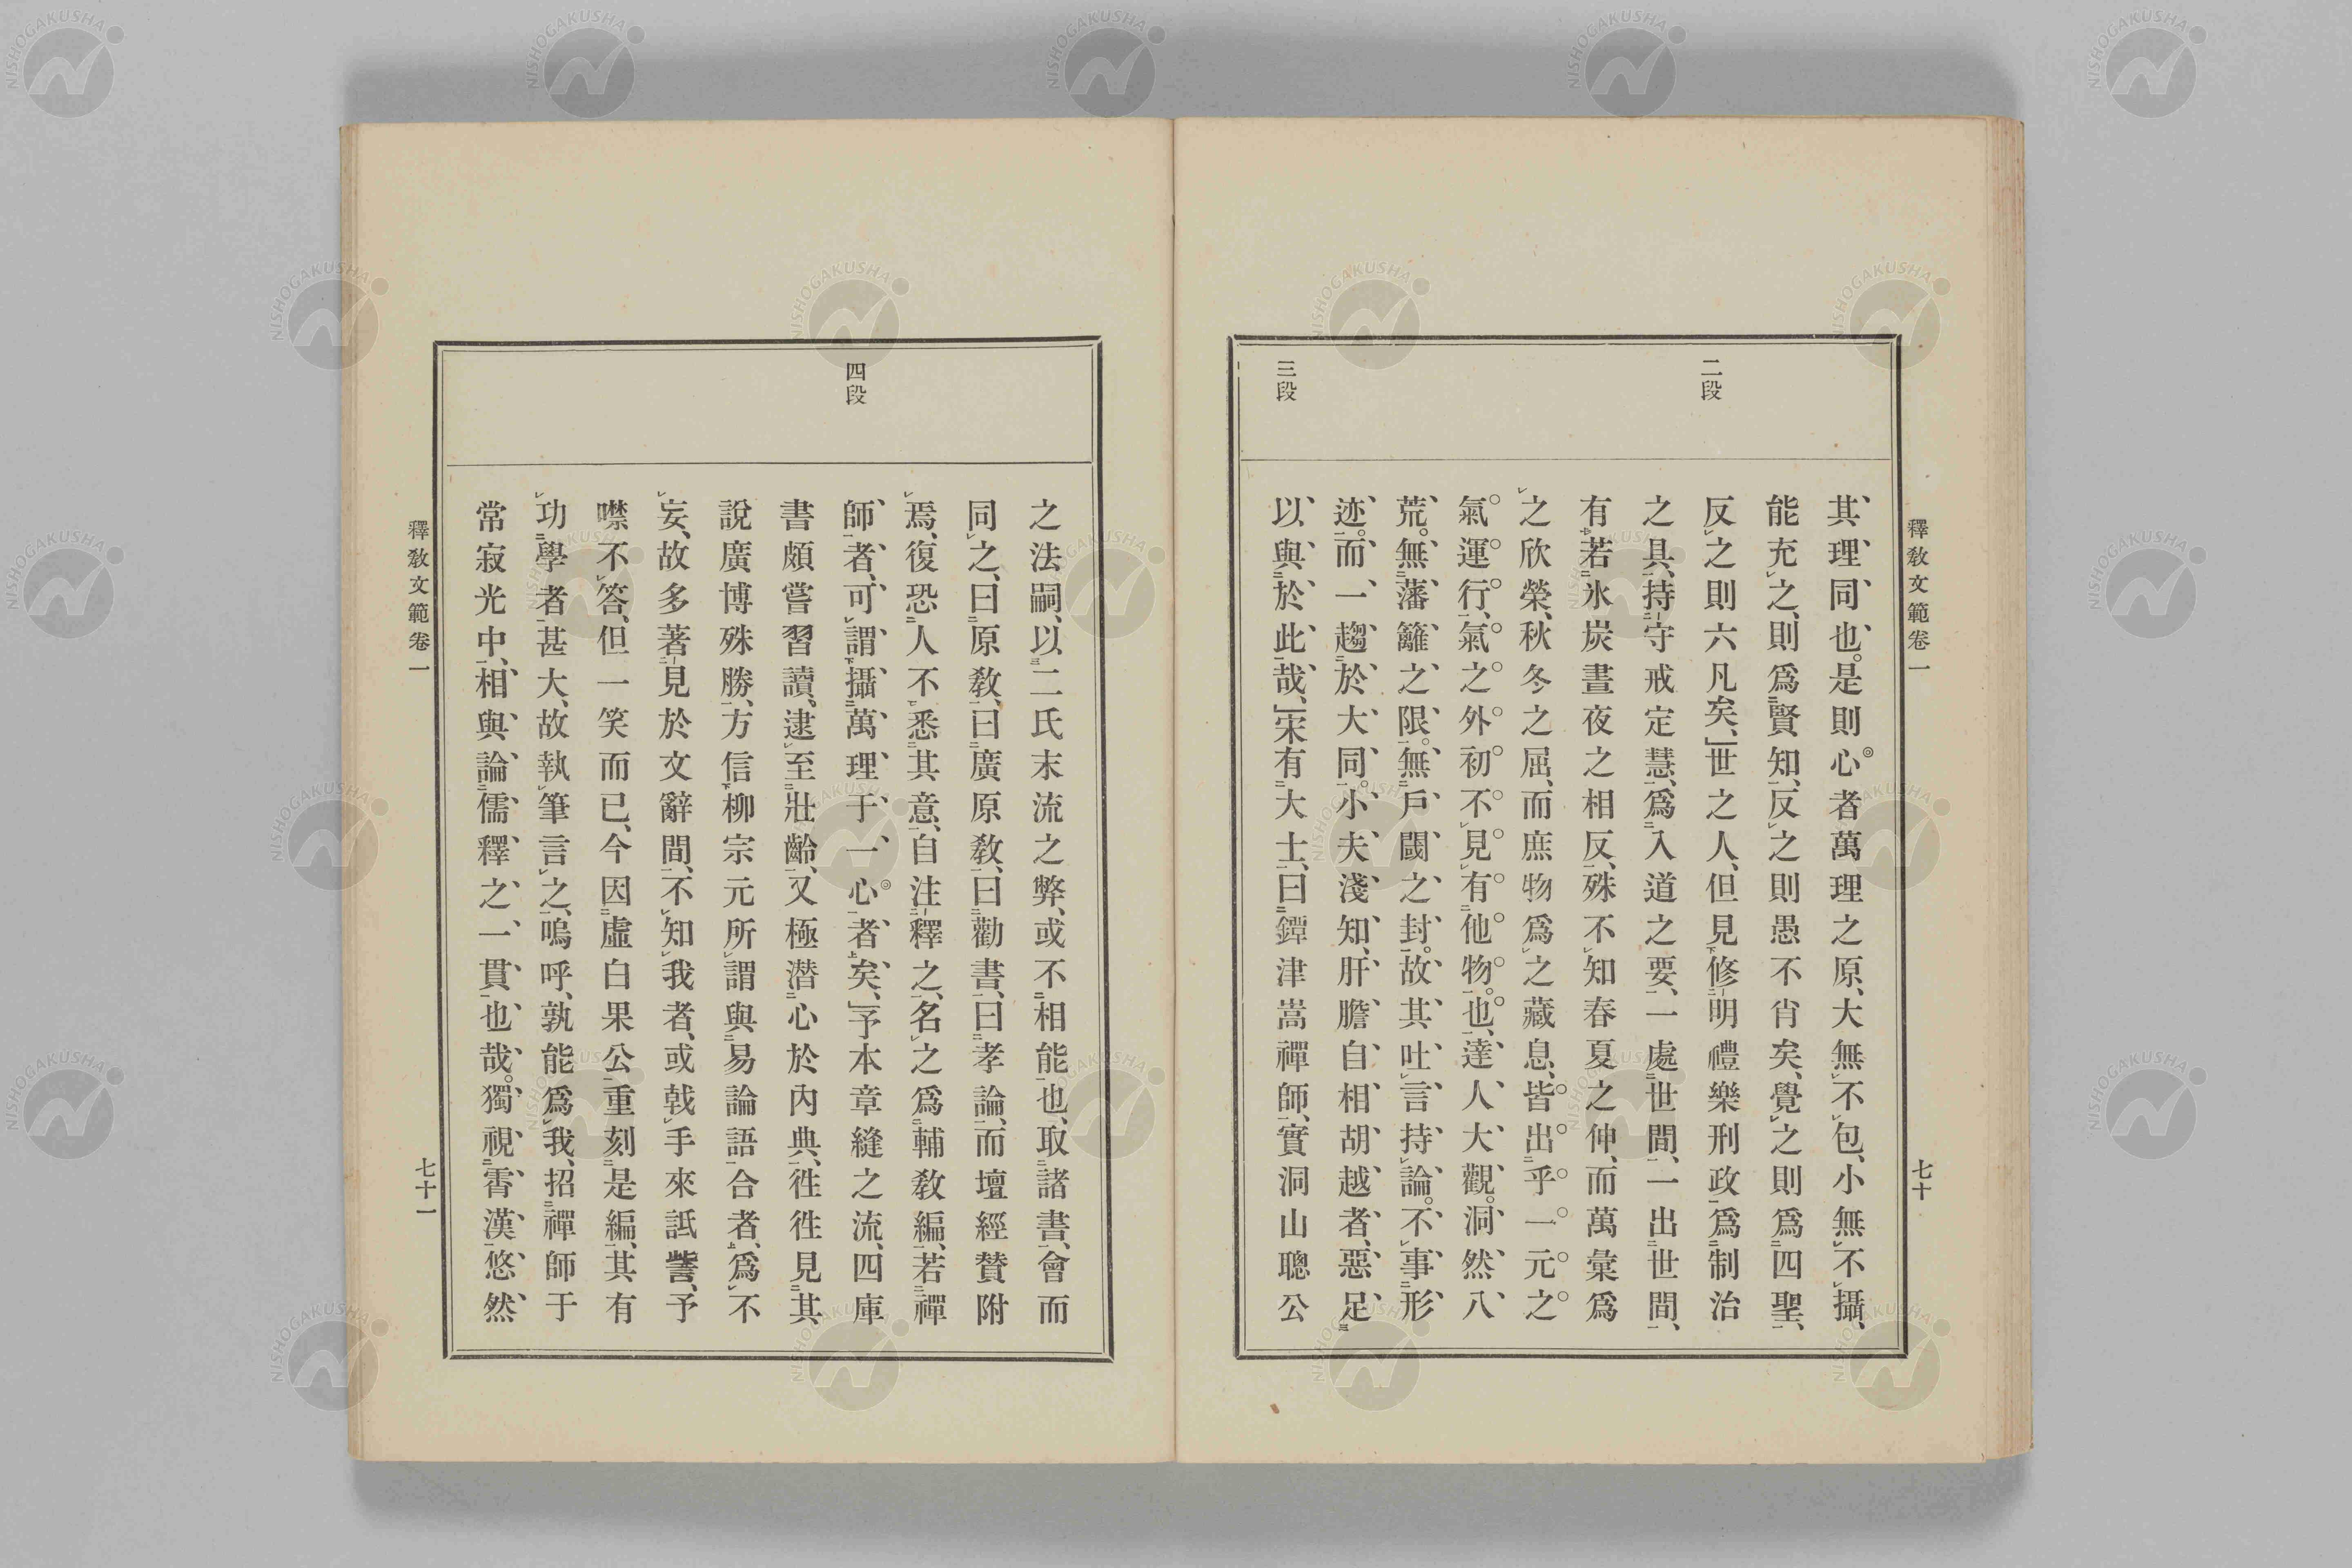 釋教文範卷一
七十
二段
三段
其理同也。是則心者萬理之原、大無不包、小無不攝、
能充之、則爲賢知、反之則愚不肖矣、覺之則爲四聖、
反之則六凡矣、」世之人、但見修明禮樂刑政爲制治
之具、持守戒定慧、爲入道之要、一處世間、一出世間、
有若氷炭晝夜之相反、殊不知春夏之伸、而萬彙爲
之欣榮、秋冬之屈、而庶物爲之藏息、皆出乎一元之
氣運行、氣之外初不見有他物也、達人大觀。洞然八
荒。無藩籬之限。無戶閾之封。故其吐言持論。不事形
迹。而一趨於大同。小夫淺知、肝膽自相胡越者、惡足
以與於此哉、」宋有大士、曰鐔津嵩禪師、實洞山聰公
釋教文範卷一
七十一
四段
之法嗣、以二氏末流之弊、或不相能也、取諸書、會而
同之、曰原敎、曰廣原敎、曰勸書、曰孝論、而壇經贊附
焉、復恐人不悉其意、自注釋之、名之爲輔敎編、若禪
師者、可謂攝萬理于一心者矣、」予本章縫之流、四庫
書頗嘗習讀、逮至壯齡、又極潛心於內典、徃徃見其
說廣博殊勝、方信柳宗元所謂與易論語合者、爲不
妄、故多著見於文辭間、不知我者、或戟手來詆訾、予
噤不答、但一笑而已、今因虛白果公重刻是編、其有
功學者甚大、故執筆言之、嗚呼、孰能爲我、招禪師于
常寂光中、相與論儒釋之一貫也哉。獨視霄漢、悠然